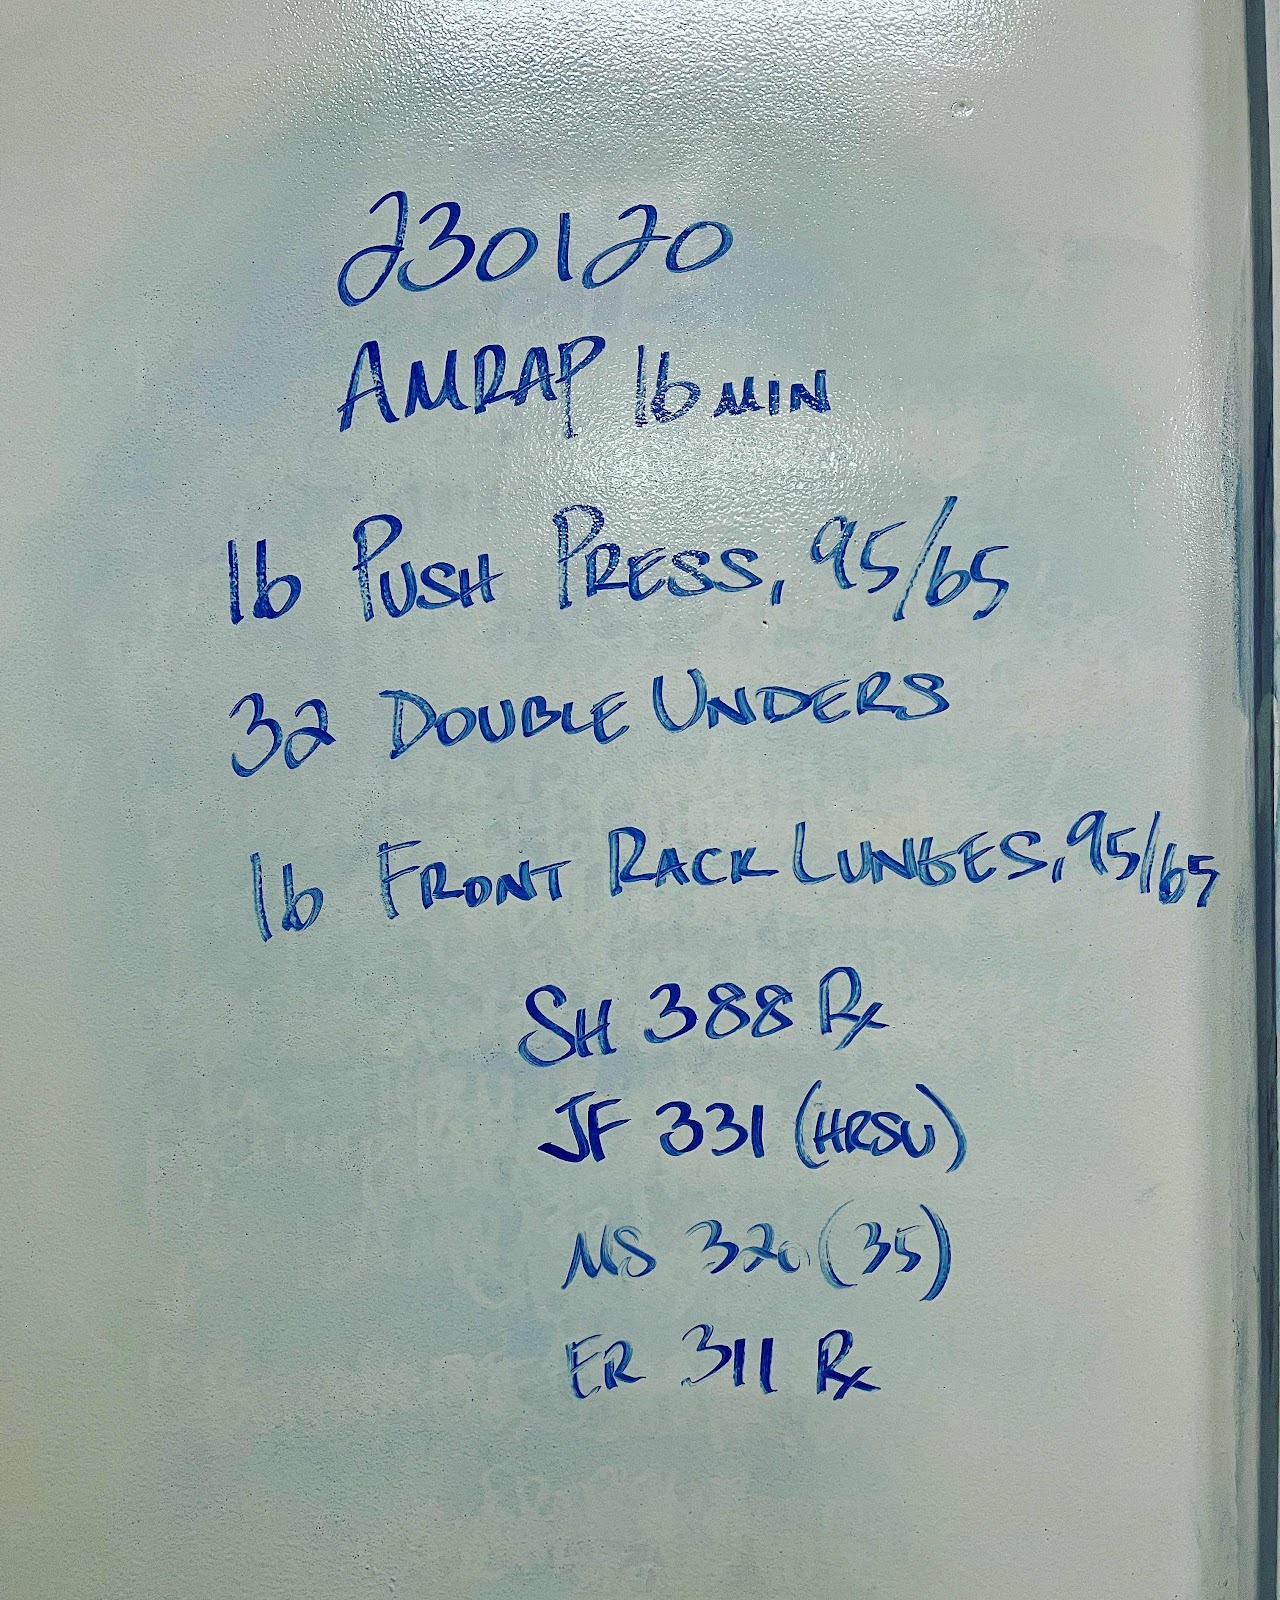 230120
AMRAP 16 MIN
16 PUSH PRESS, 95/65
32 DOUBLE UNDERS
16 FRONT RACK LUNGES, 95/65
SH 388 Rx
JF 331 (HRSU)
MS 320 (35)
ER 311 Rx